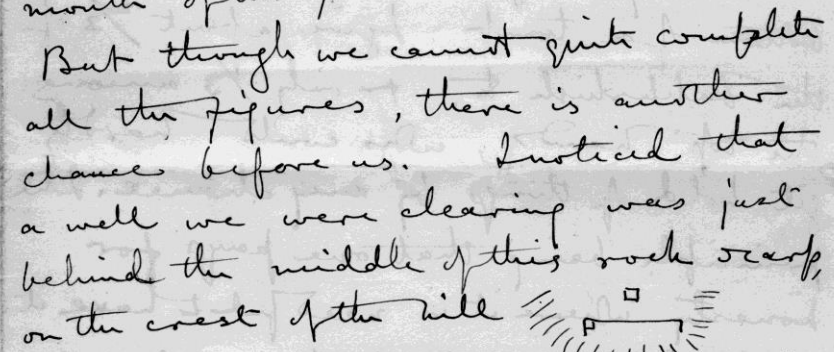 But though we cannot quite complete
all the figures, there is another
chance before us. I noticed that
a well we were clearing was just
behind the middle of this rock scarp,
on the crest of the hill